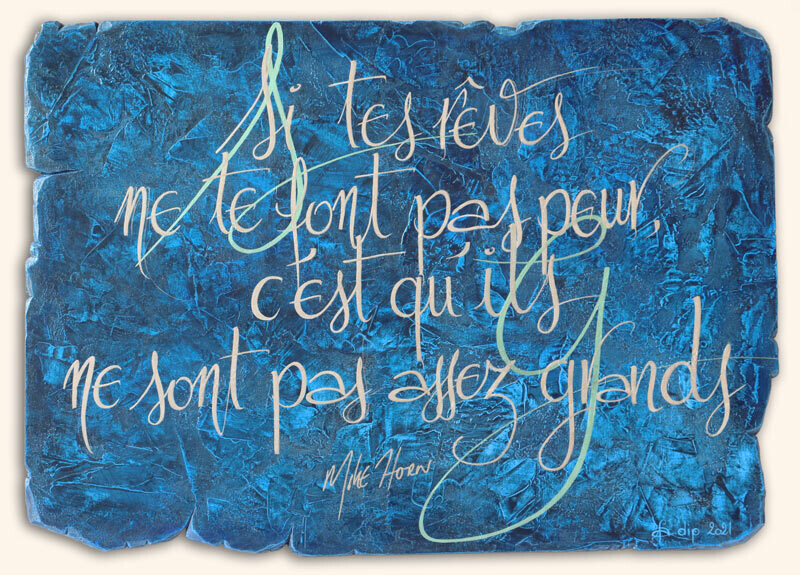 Si tes rêves
ne te font pas peur,
c'est qu'ils
ne sont pas assez grands
Mike Horn
dip 2021